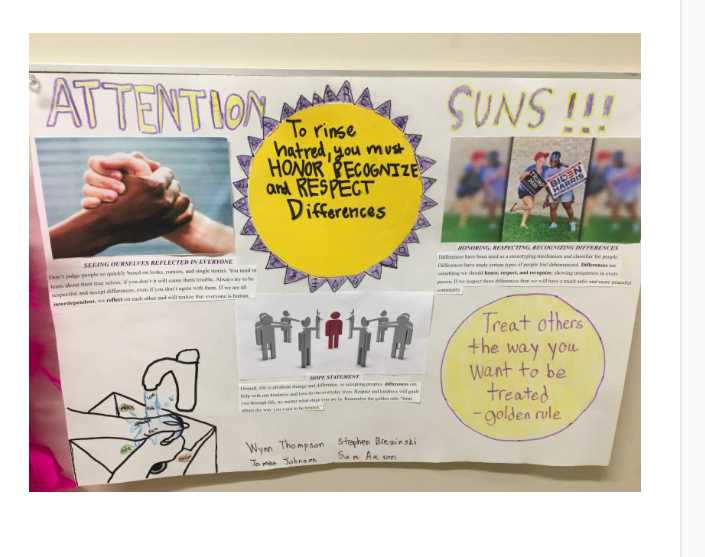 ATTENTION
SUNS!!!
To rinse
hatred, you must
HONOR RECOGNIZE
and RESPECT
Differences
SEEING OURSELVES REFLECTED IN EVERYONE
Don't judge people so quickly based on looks, rumors, and single stories. You need to
learn about their true selves, if you don't it will cause them trouble. Always try to be
respectful and accept differences, even if you don't agree with them. If we are all
interdependent, we reflect on each other and will realize that everyone is human.
BIDEN
HARRIS
HONORING, RESPECTING, RECOGNIZING DIFFERENCES
Differences have been used as a stereotyping mechanism and classifier for people.
Differences have made certain types of people feel dehumanized. Differences are
something we should honor, respect, and recognize, showing uniqueness in every
person. If we respect these differences then we will have a much safer and more peaceful
community.
HOPE STATEMENT
Overall, life is all about change and difference, so accepting peoples differences can
help with our kindness and love in our everyday lives. Respect and kindness will guide
you through life, no matter what steps you are in. Remember the golden rule: "treat
others the way you want to be treated."
Treat others
the way you
Want to be
treated
-golden rule
Wynn Thompson Stephen
James Johnson Sam